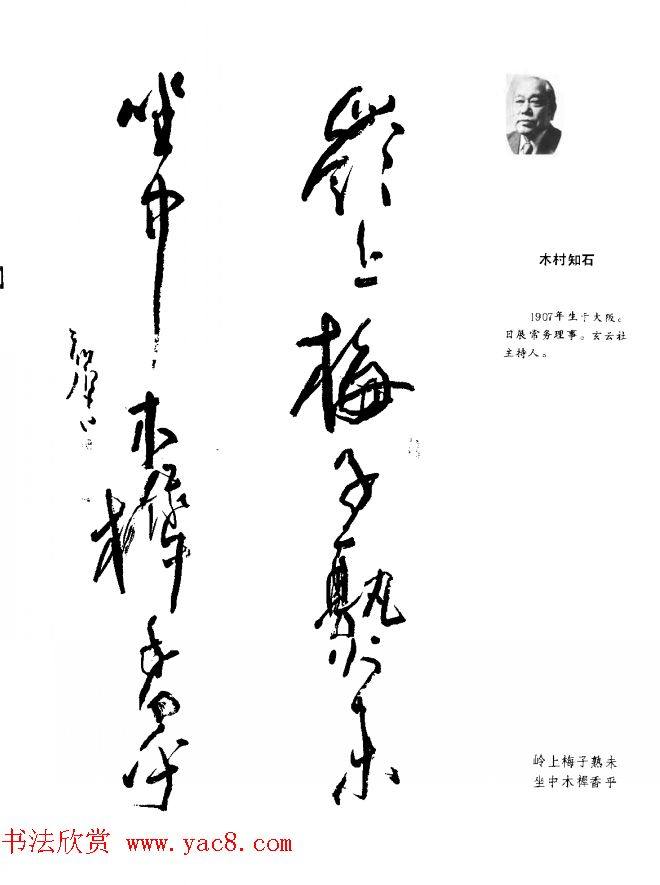 嶺上梅子熟未
坐中木樨香乎
木村知石
1907年生于大阪。
日展常务理事。玄云社
主持人。
岭上梅子熟未
坐中木樨香乎
书法欣赏 www.yac8.com